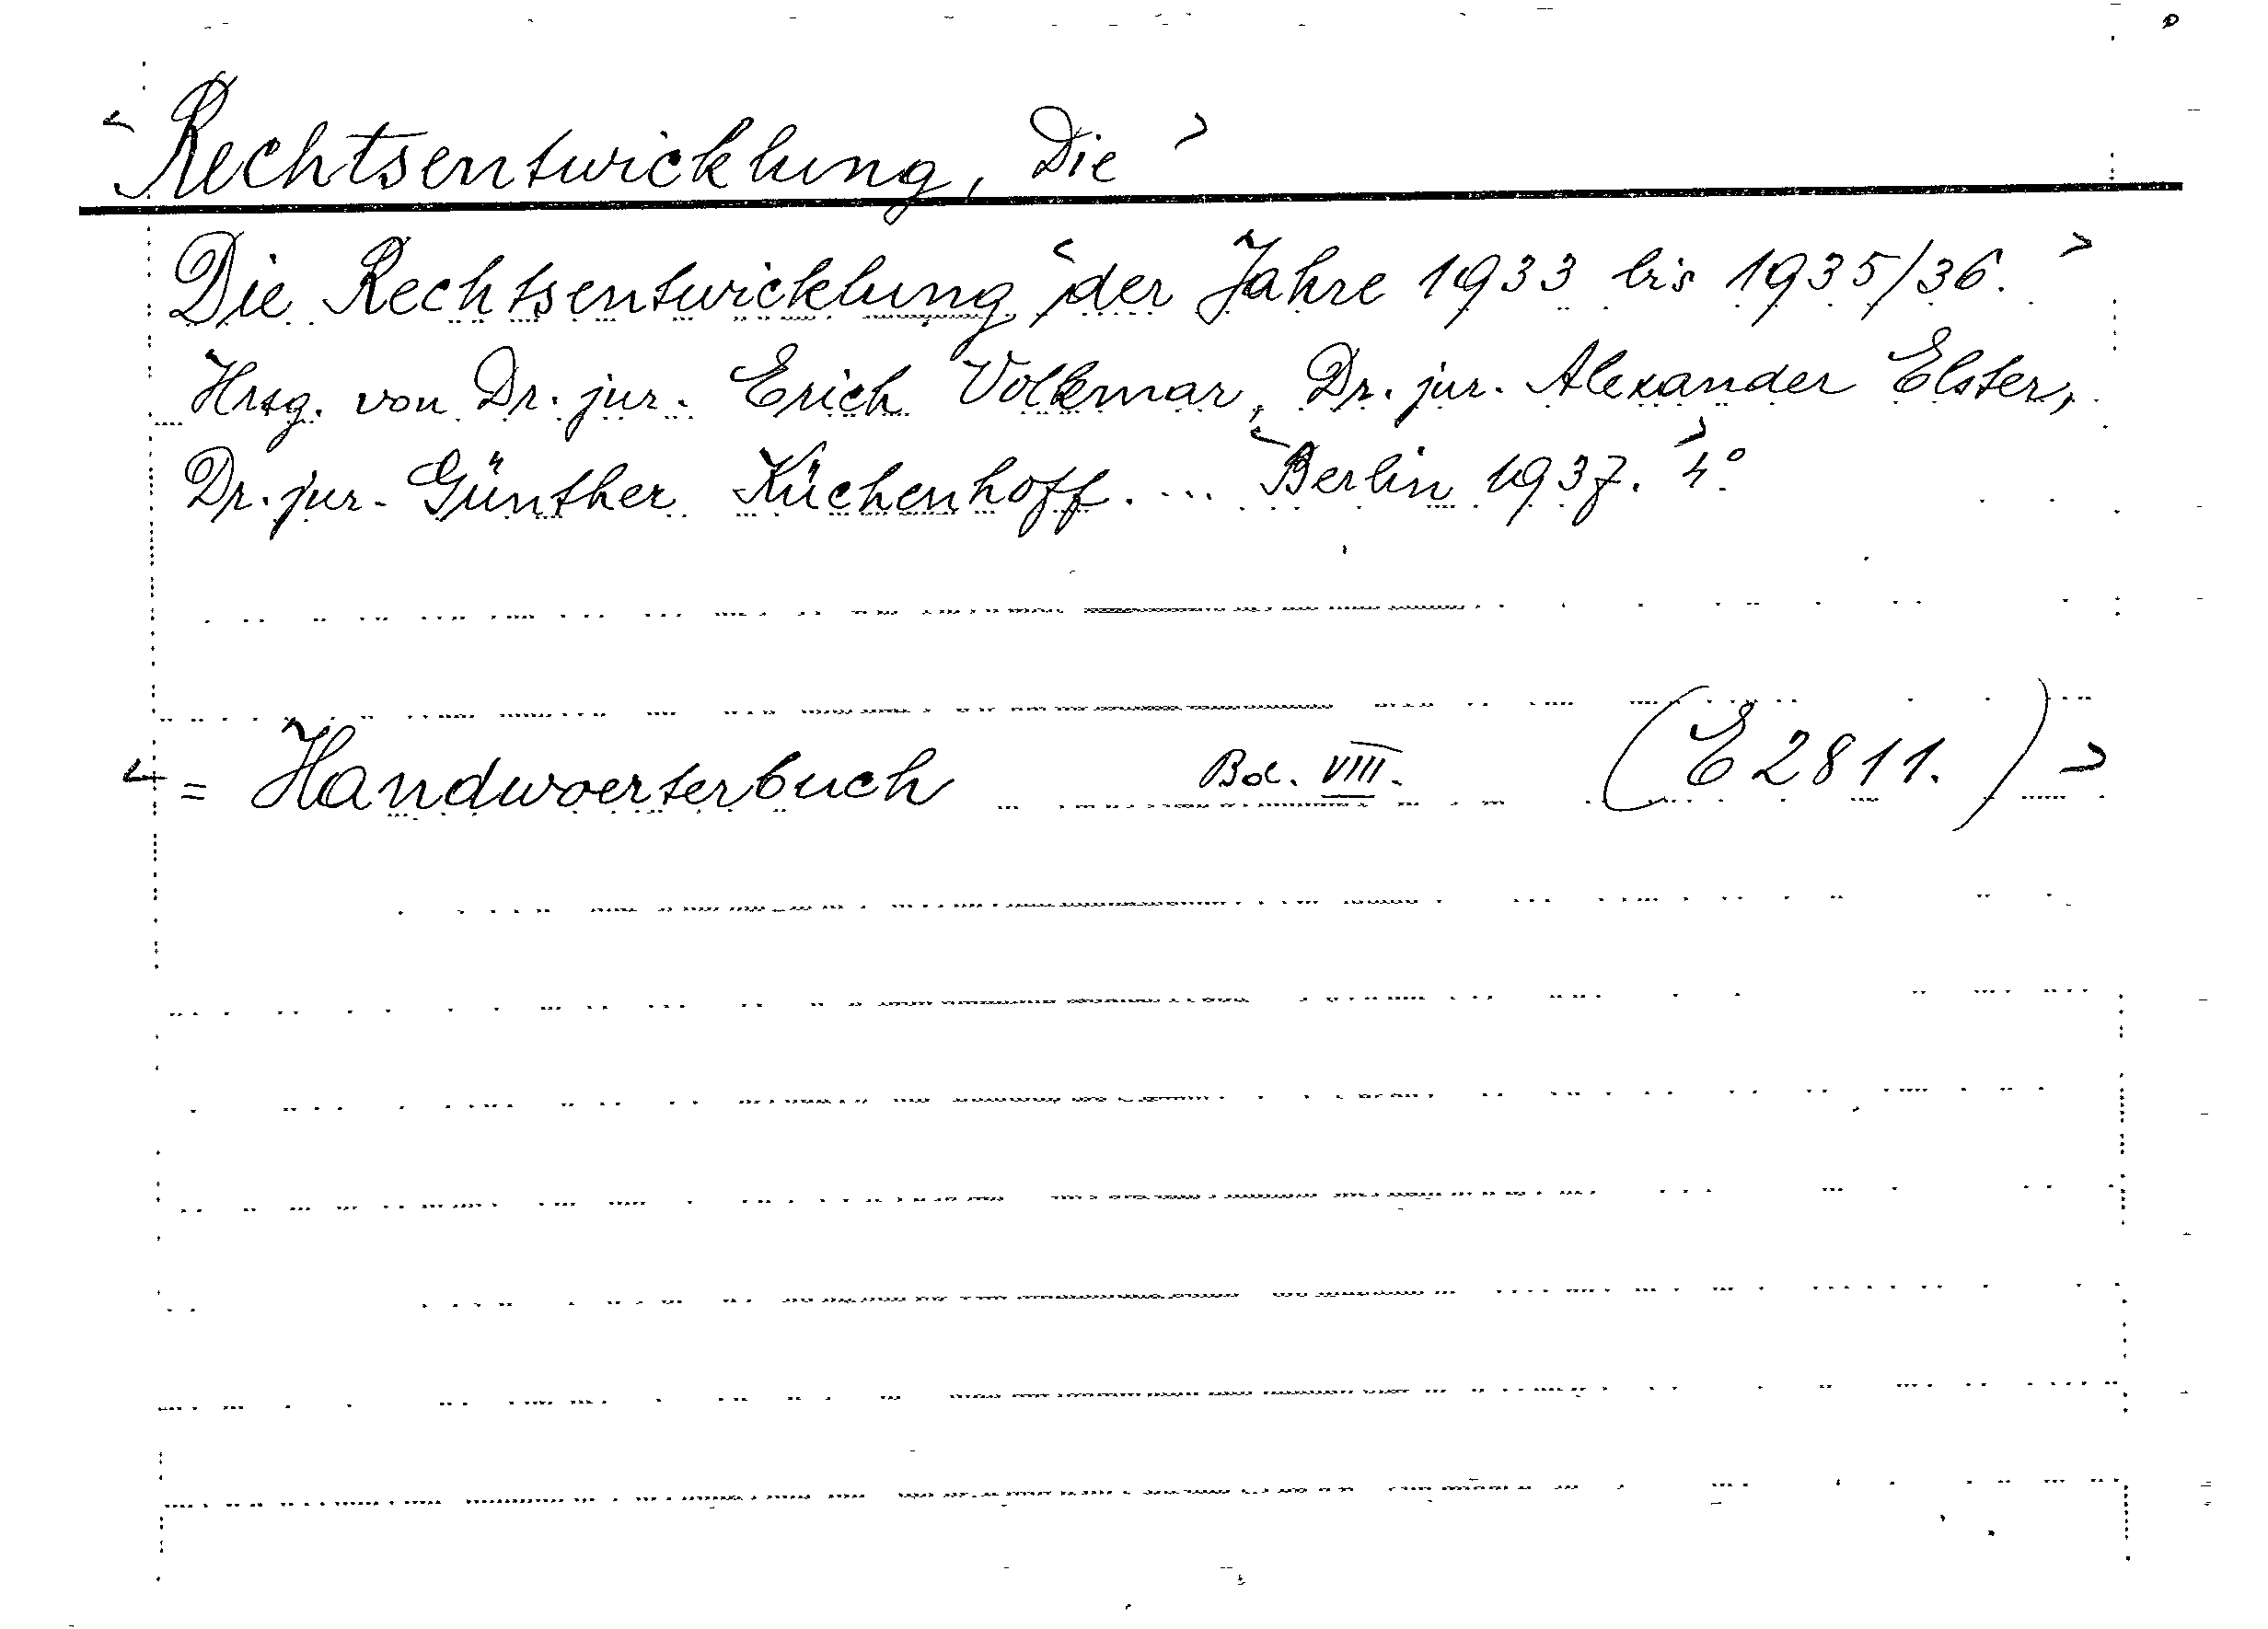 < Rechtsentwicklung, Die >
Die Rechtsentwicklung < der Jahre 1933 bis 1935/36. >
Hrsg. von Dr. jur. Erich Volkmar, Dr. jur. Alexander Elster,
Dr. jur. Günther Küchenhoff. ... < Berlin 1937. > 4°.
< = Handwoerterbuch Bd. VIII. (E 2811.) >